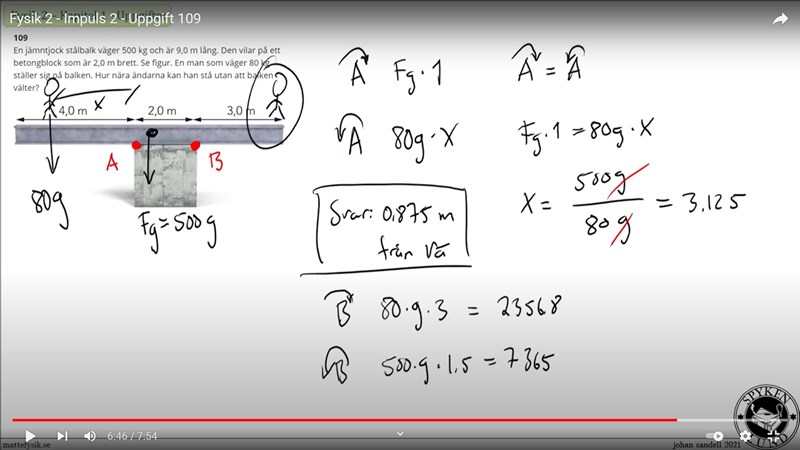 Fysik 2 - Impuls 2 - Uppgift 109
109
En jämntjock stålbalk väger 500 kg och är 9,0 m lång. Den vilar på ett
betongblock som är 2,0 m brett. Se figur. En man som väger 80 kg
ställer sig på balken. Hur nära ändarna kan han stå utan att balken
välter?
x
4,0 m 2,0 m 3,0 m
A B
80g
Fg = 500g
A Fg · 1
A 80g · X
A = A
Fg · 1 = 80g · X
X = 500g / 80g = 3,125
Svar: 0,875 m
från vä
B 80 · g · 3 = 23568
B 500 · g · 1,5 = 7365
SPYKEN
6:46 / 7:54
mattefysik.se
johan sandell 2021